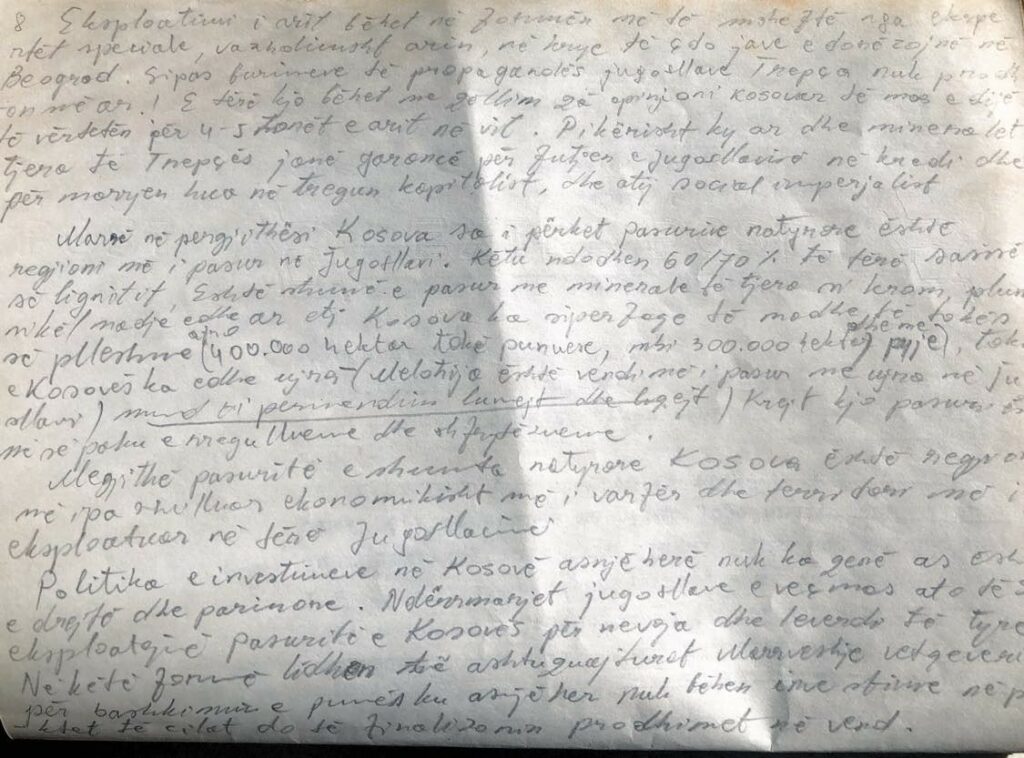 8 Eksploatimi i arit bëhet në formën më të mshehtë nga ekspe
rtët speciale, vazhdimisht arin, në krye të çdo jave e dërgojnë në
Beograd. Sipas burimeve të propagandës jugosllave Trepça nuk prodh
on më ar! E tërë kjo bëhet me qëllim që opinjoni kosovar të mos e dijë
të vërtetën për 4-5 tonët e arit në vit. Pikërisht ky ar dhe mineralet
tjera të Trepçës janë garancë për futjen e jugosllavisë në kredi dhe
për marrjen hua në tregun kapitalist, dhe atij social imperjalist
Marrë në pergjithësi Kosova sa i përket pasurive natyrore është
regjioni më i pasur në Jugosllavi. Këtu ndodhen 60/70% të tërë sasisë
së lignitit, Eshtë shumë e pasur me minerale të tjera si krom, plum
nikël madje edhe ar etj Kosova ka siperfaqe të madhe të tokës
së plleshme (400.000 hektar tokë punuese, mbi 300.000 hektar dhe me pyje), tok
e Kosovës ka edhe ujra (Metohija është vendi më i pasur me ujra në Ju
sllavi) mund ti permendim lumejt dhe liqejt) Krejt kjo pasuri
në së paku e rregullueme dhe shfrytëzueme.
Megjithë pasuritë e shumta natyrore Kosova është regjio
në i pa zhvilluar ekonomikisht më i varfër dhe territori më i
eksploatuar në tërë Jugosllavinë
Politika e investimeve në Kosovë asnjëherë nuk ka qenë as ësh
e drejtë dhe parimore. Ndërrmarjet jugosllave e veçmas ato të
eksploatojnë pasuritë e Kosovës për nevoja dhe leverdi të tyre
Në këtë formë lidhen të ashtuquajturat Marrveshje vetqeveri
për bashkimin e punës ku asnjëher nuk bëhen investime në p
ktet të cilat do të finalizonin prodhimet në vend.